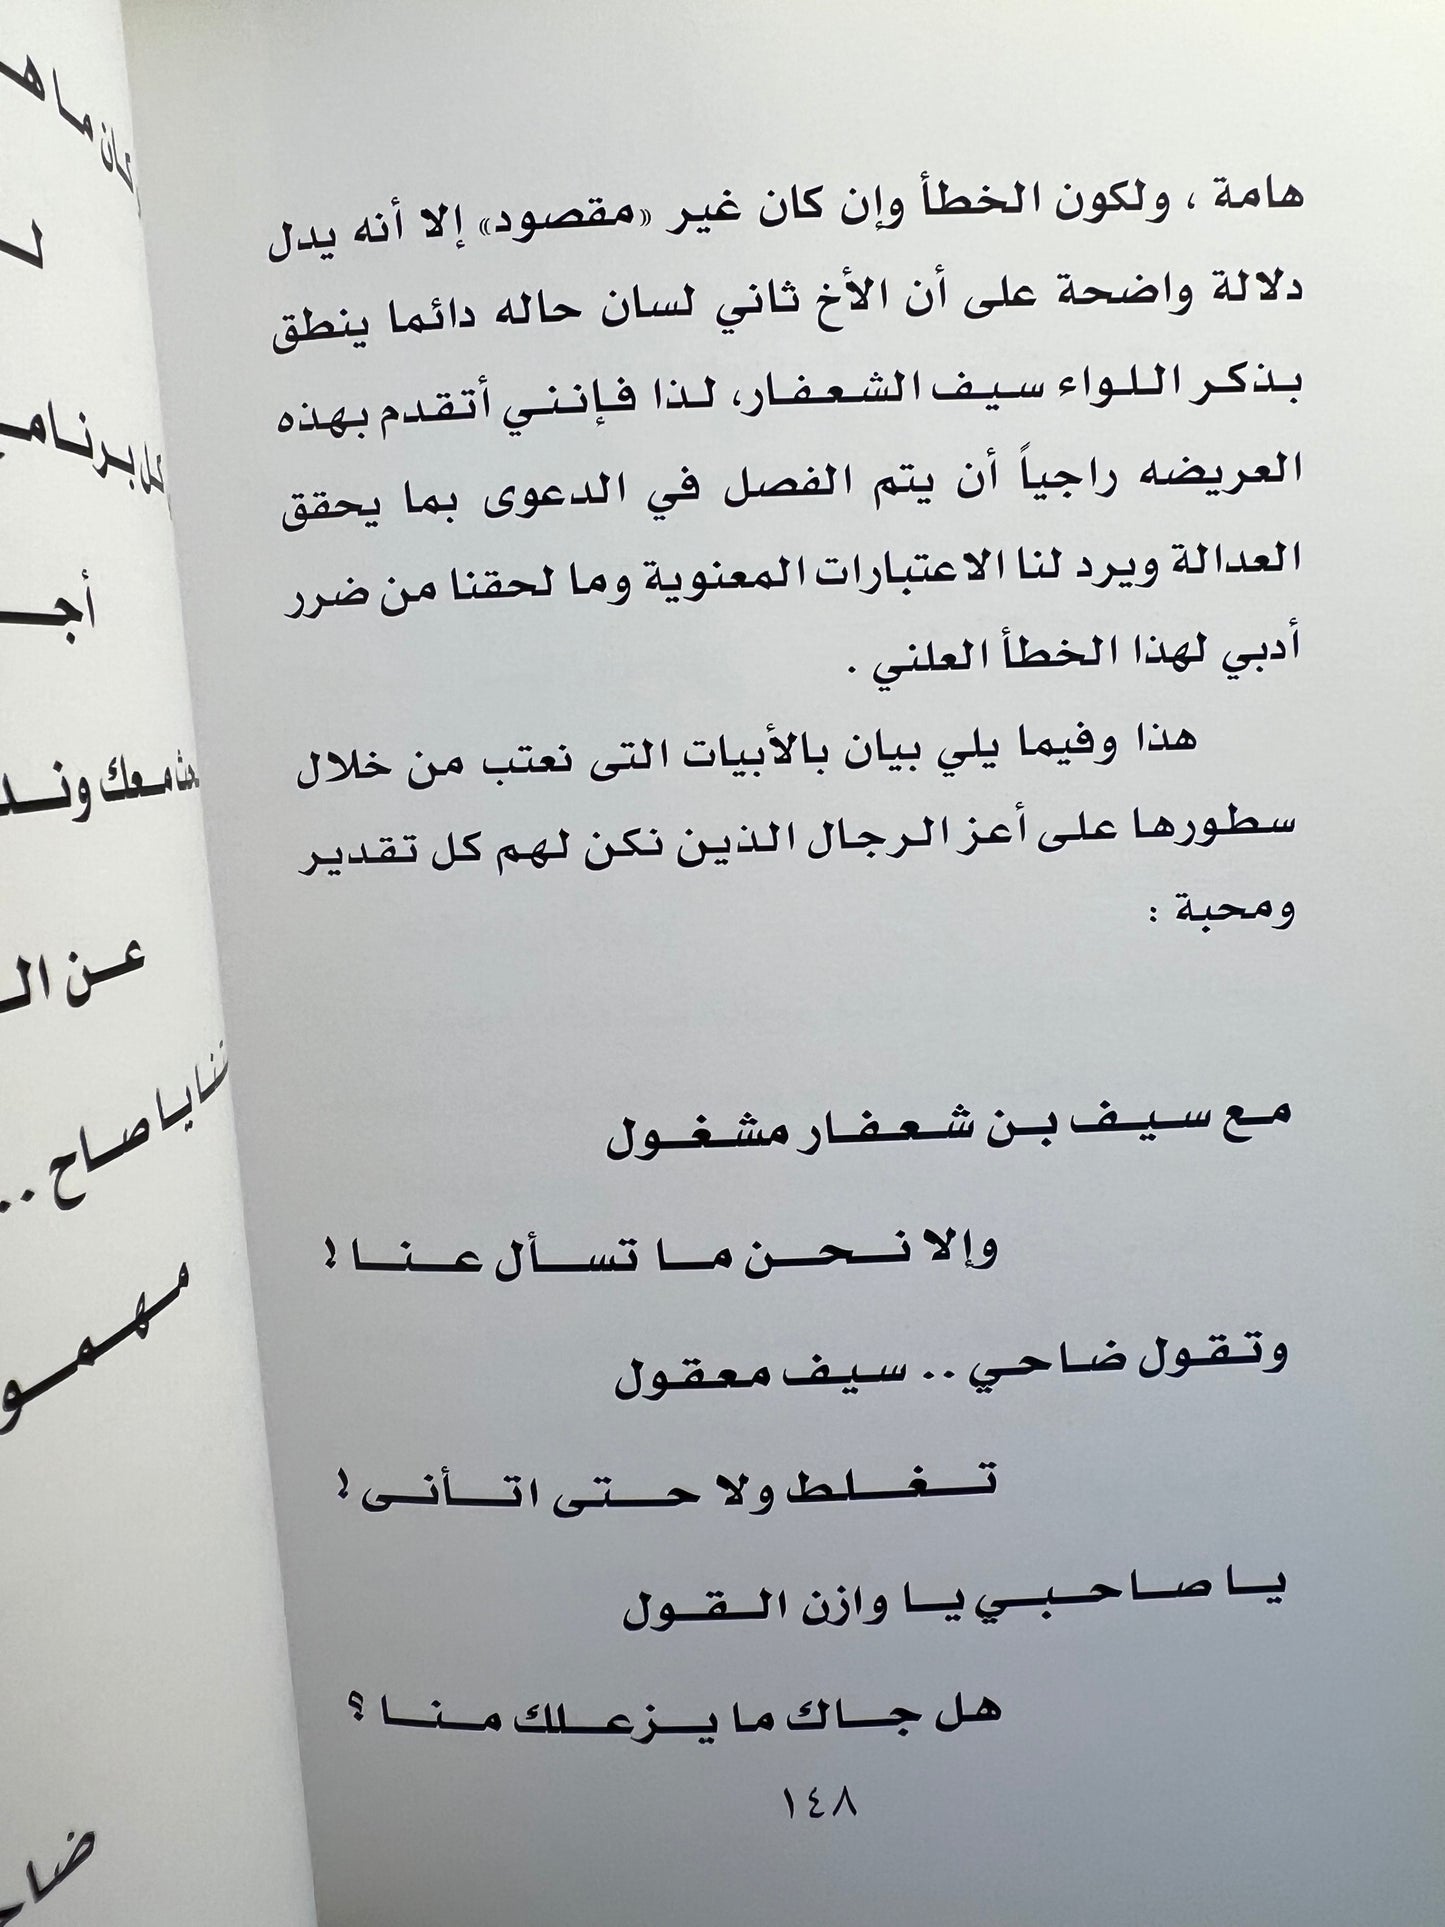 هامة ، ولكون الخطأ وإن كان غير «مقصود» إلا أنه يدل
دلالة واضحة على أن الأخ ثاني لسان حاله دائما ينطق
بذكر اللواء سيف الشعفار، لذا فإنني أتقدم بهذه
العريضه راجياً أن يتم الفصل في الدعوى بما يحقق
العدالة ويرد لنا الاعتبارات المعنوية وما لحقنا من ضرر
أدبي لهذا الخطأ العلني .
هذا وفيما يلي بيان بالأبيات التى نعتب من خلال
سطورها على أعز الرجال الذين نكن لهم كل تقدير
ومحبة :
مع سيف بن شعفار مشغول
وإلا نحن ما تسأل عنا !
وتقول ضاحي .. سيف معقول
تغلط ولا حتى اتأنى !
يا صاحبي يا وازن القول
هل جاك ما يزعلك منا ؟
١٤٨
كان ما ها
كل برنامج
أجـ
معك وند
عن الـ
يا صاح ..
مهمو
ضاحـ